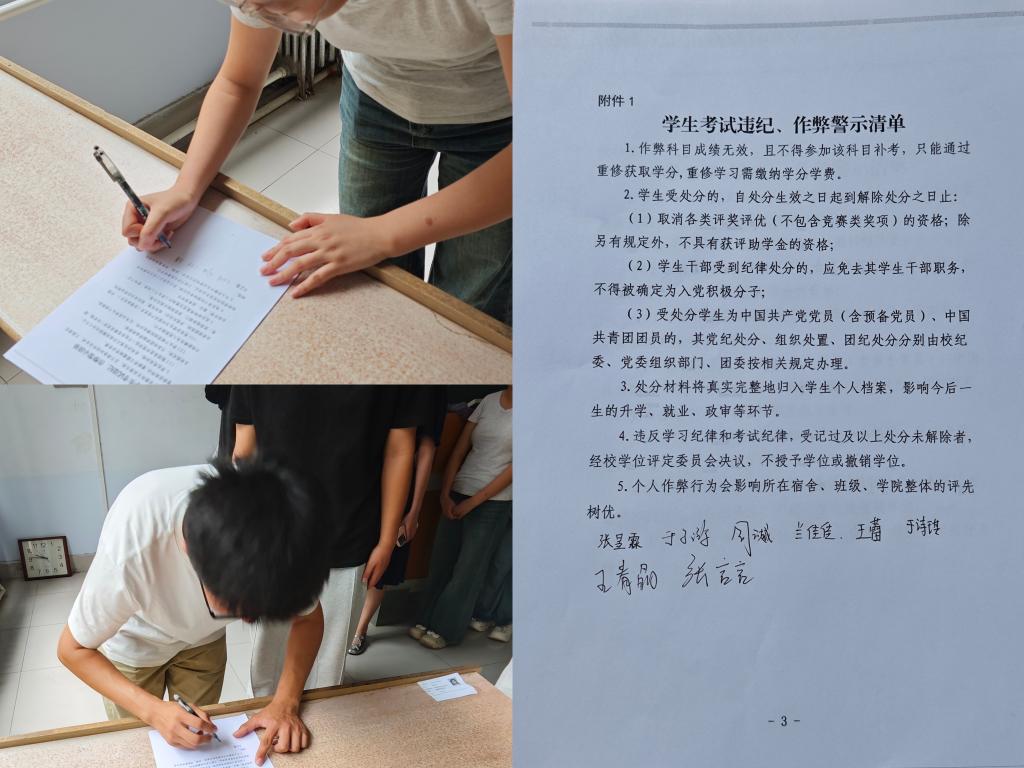 附件 1
学生考试违纪、作弊警示清单
1.作弊科目成绩无效，且不得参加该科目补考，只能通过
重修获取学分,重修学习需缴纳学分学费。
2.学生受处分的，自处分生效之日起到解除处分之日止：
（1）取消各类评奖评优（不包含竞赛类奖项）的资格；除
另有规定外，不具有获评助学金的资格；
（2）学生干部受到纪律处分的，应免去其学生干部职务，
不得被确定为入党积极分子；
（3）受处分学生为中国共产党党员（含预备党员）、中国
共青团团员的，其党纪处分、组织处置、团纪处分分别由校纪
委、党委组织部门、团委按相关规定办理。
3.处分材料将真实完整地归入学生个人档案，影响今后一
生的升学、就业、政审等环节。
4.违反学习纪律和考试纪律，受记过及以上处分未解除者，
经校学位评定委员会决议，不授予学位或撤销学位。
5.个人作弊行为会影响所在宿舍、班级、学院整体的评先
树优。
张昱霖 周诚 王蕾
张言言
- 3 -